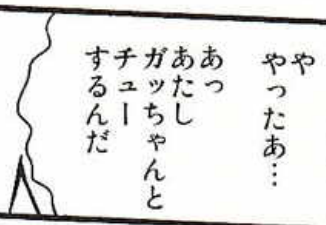 や
やったあ…
あっ
あたし
ガッちゃんと
チュー
するんだ